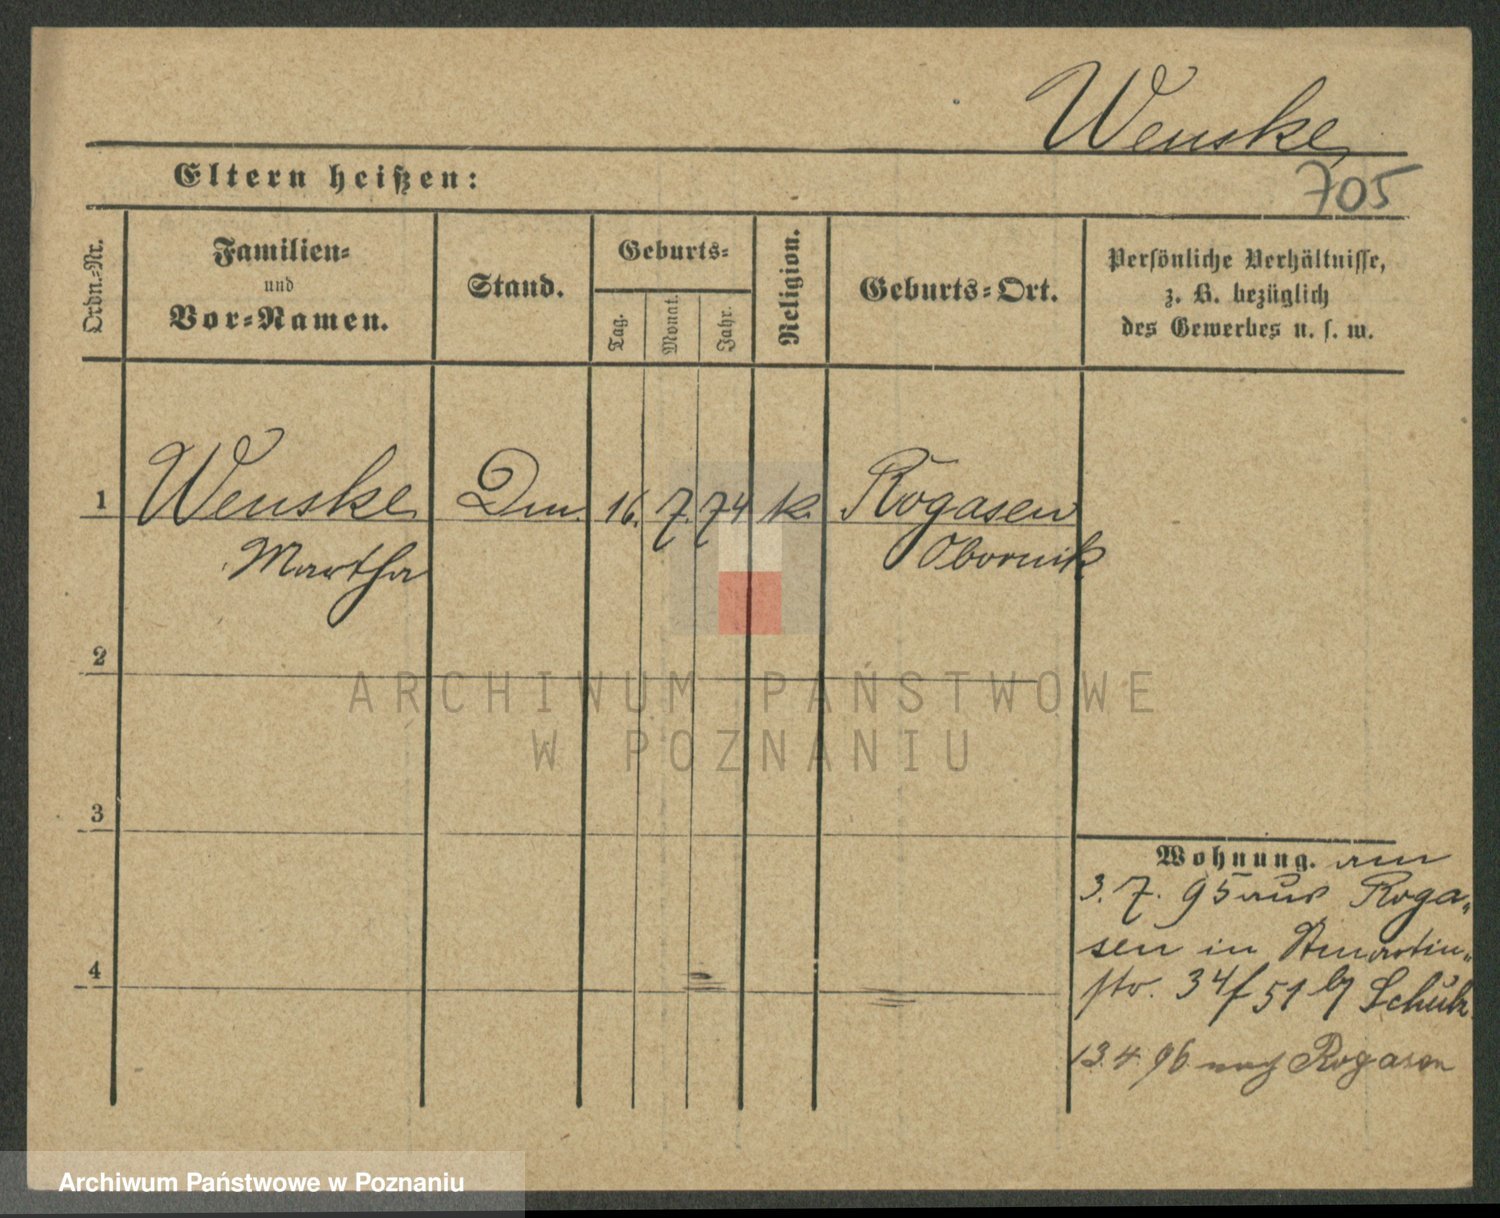 Wenske
705
Eltern heißen:
Ordn.-Nr.
Familien-
und
Vor-Namen.
Stand.
Geburts-
Tag.
Monat.
Jahr.
Religion.
Geburts-Ort.
Persönliche Verhältnisse,
z. B. bezüglich
des Gewerbes u. s. w.
1 Wenske Dm. 16. 7. 74 k. Rogasen
Martha Obornik
2
3
4
Wohnung. am
3. 7. 95 aus Roga-
sen in Stmartin-
str. 34/51 b/ Schulz
13.4.96 nach Rogasen
ARCHIWUM PAŃSTWOWE
W POZNANIU
Archiwum Państwowe w Poznaniu